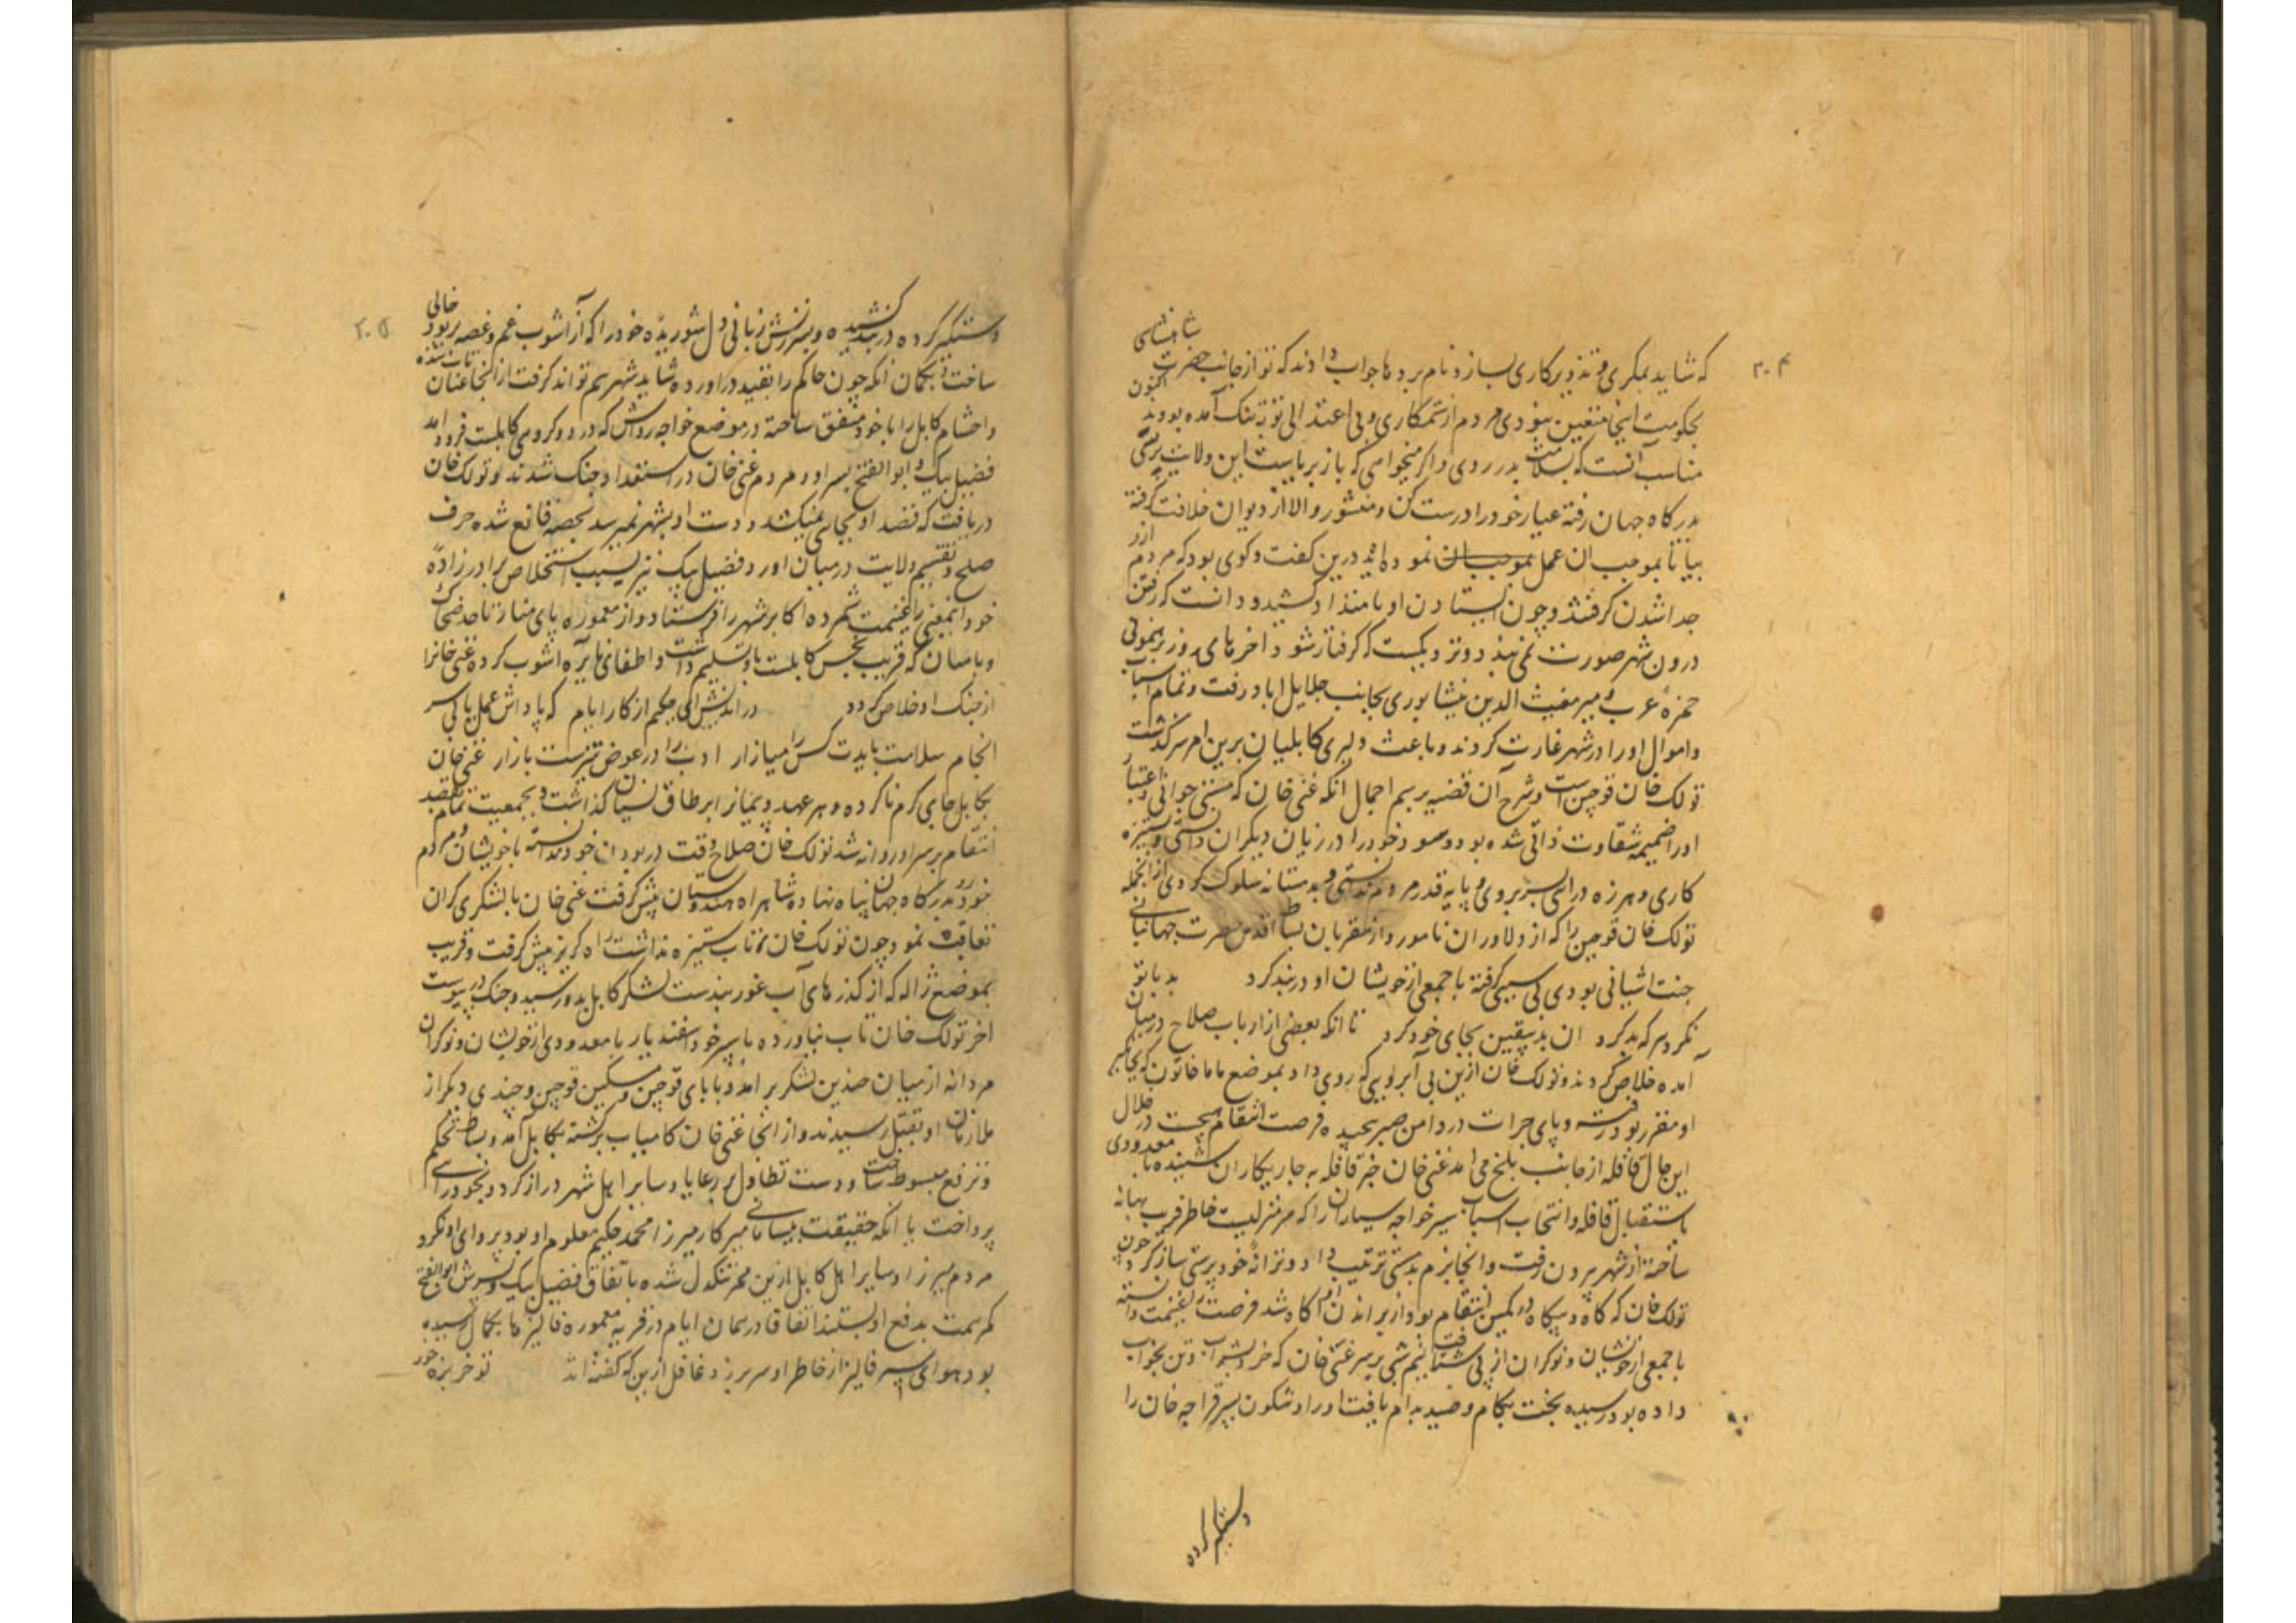 ۲۰۴
که شاید بمکری و تذویرکاری بسازد نام برده ها جواب دادند که تو از جانب حضرت شاهنشاهی
بحکومت اینجا متعین نبودی مردم از ستمکاری و بی اعتدالی تو بتنک آمده بودند اکنون
مناسب آنست که بسلامت بدر روی و اکر میخواهی که باز بریاست این ولایت برسی
بدرکاه جهان رفته عیار خود را درست کن و منشور والا از دیوان خلافت کرفته
بیا تا بموجب ان عمل نموده آید درین کفت و کوی بود که مردم ازو
جدا شدن کرفتند و چون ایستادن او بامتداد کشید و دانست که رفتن
درون شهر صورت نمی بندد و نزدیکست که کرفتار شود اخرهای روز برهنمونی
حمزه عرب و میر مغیث الدین نیشابوری بجانب جلال اباد رفت و تمام اسباب
و اموال او را در شهر غارت کردند و باعث دلیری کابلیان برین امر سرکذشت
تولک خان قوچین است و شرح آن قضیه برسم اجمال انکه غنی خان که مستی جوانی و اعتبار
او را ضمیمه شقاوت ذاتی شده بود و سود خود را در زیان دیکران دانستی و ستیزه
کاری و هرزه درائی بسر بردی و پایه قدر مردم ندانستی و بدمستانه سلوک کردی از انجمله
تولک خان قوچین را که از دلاوران نامور و از مقربان بساط اقدس حضرت جهانبانی
جنت اشیانی بودی بی سببی کرفته با جمعی از خویشان او در بند کرد بد با تو
نکرد هر که بد کرد ان بد بیقین بجای خود کرد تا انکه بعضی از ارباب صلاح در میان
آمده خلاص کردند و تولک خان ازین بی آبرویی که روی داد بموضع ماما خاتون که بجاکیر
او مقرر بود رفته و پای جرات در دامن صبر پیچیده فرصت انتقام میجست در خلال
این حال قافله از جانب بلخ می امد غنی خان خبر قافله به چاریکاران شنیده با معدودی
باستقبال قافله و انتخاب اسباب سیر خواجه سیاران را که سرمنزلیست خاطرفریب بهانه
ساخته از شهر بیرون رفت و انجا بزم بدمستی ترتیب داد و ترانه خودپرستی ساز کرد چون
تولک خان که کاه و بیکاه در کمین انتقام بود ازبر امدن او آکاه شد فرصت غنیمت دانسته
با جمعی از خویشان و نوکران از پی شتافت نیم شبی بر سر غنی خان که خرد بشراب و تن بخواب
داده بود رسید بخت بکام و صید بدام یافت او را و شکون پسر قراچه خان را
دستکیر کرده
۲۰۵
دستکیر کرده در بند کشیده و بسرزنش زبانی دل شوریده خود را که از آشوب غم و غصه پر بود خالی
ساخت و بکمان آنکه چون حاکم را بقید در اورده شاید شهر هم تواند کرفت از آنجا عنان تاب شده
و احشام کابل را با خود متفق ساخته در موضع خواجه رواش که در دو کروهی کابلست فرود امد
فضیل بیک و ابو الفتح پسر او و مردم غنی خان در استعداد جنک شدند و تولک خان
دریافت که قصد او بجای نمیکشد و دست او بشهر نمیرسد بحصه قانع شده حرف
صلح و تقسیم ولایت در میان اورد و فضیل بیک نیز بسبب استخلاص برادرزاده
خود اینمعنی را غنیمت شمرده اکابر شهر را فرستاد و از معموره پای منار تا حد ضحاک
و بامیان که قریب بخمس کابلست باو تسلیم داشت و اطفای نایره اشوب کرده غنی خانرا
از چنک او خلاص کرد در اندیش ای حکیم از کار ایام که پاداش عمل یابی سر
انجام سلامت بایدت کس را میازار ادب را در عوض تیزست بازار غنی خان
بکابل جای کرم ناکرده و هر عهد و پیمانرا بر طاق نسیان کذاشت و بجمعیت تمام بقصد
انتقام بر سر او روانه شد تولک خان صلاح وقت در بودن خود ندانسته با خویشان و مردم
خود رو بدرکاه جهان پناه نهاده شاهراه هندوستان پیش کرفت غنی خان با لشکری کران
تعاقب نمود چون تولک خان تاب ستیزه نداشت راه کریز پیش کرفت و قریب
بموضع ژاله که از کذرهای آب غوربندست لشکر کابل بدو رسید و جنک در پیوست
اخر تولک خان تاب نیاورده با پسر خود اسفندیار با معدودی از خویشان و نوکران
مردانه از میان چندین لشکر بر آمد و بابای قوچین و مسکین قوچین و چندی دیکر از
ملازمان او بقتل رسیدند و از انجا غنی خان کامیاب برکشته بکابل آمد و بساط تحکم
و ترفع مبسوط ساخت و دست تطاول بر رعایا و سایر اهل شهر دراز کرد و بخودرایی
پرداخت با انکه حقیقت بیسامانی سرکار میرزا محمد حکیم معلوم او بود پروای او نکرد
مردم میرزا و سایر اهل کابل ازین ممر تنکدل شده باتفاق فضیل بیک و پسرش ابو الفتح
کمر همت بدفع او بستند اتفاقا در همان ایام در قریه معموره فالیزها بکمال رسیده
بود هوای سیر فالیز از خاطر او سر بر زد غافل ازین که کفته اند تو خربزه خور